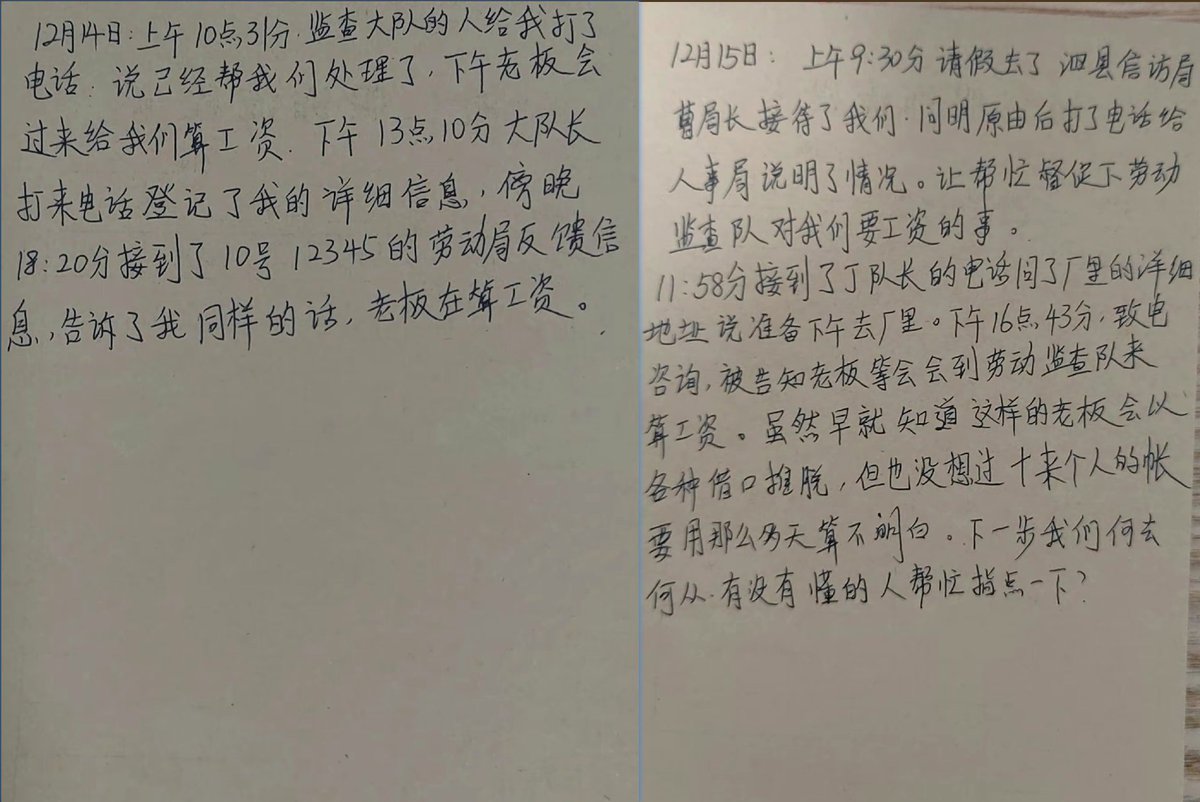 12月14日:上午10点31分.监查大队的人给我打了
电话:说已经帮我们处理了,下午老板会
过来给我们算工资.下午13点10分大队长
打来电话登记了我的详细信息,傍晚
18:20分接到了10号12345的劳动局反馈信
息,告诉了我同样的话,老板在算工资。
12月15日: 上午9:30分请假去了泗县信访局
曹局长接待了我们.问明原由后打了电话给
人事局说明了情况。让帮忙督促下劳动
监查队对我们要工资的事。
11:58分接到了丁队长的电话问了厂里的详细
地址说准备下午去厂里。下午16点43分,致电
咨询,被告知老板等会会到劳动监查队来
算工资。虽然早就知道这样的老板会以
各种借口推脱,但也没想过十来个人的帐
要用那么多天算不明白。下一步我们何去
何从.有没有懂的人帮忙指点一下?